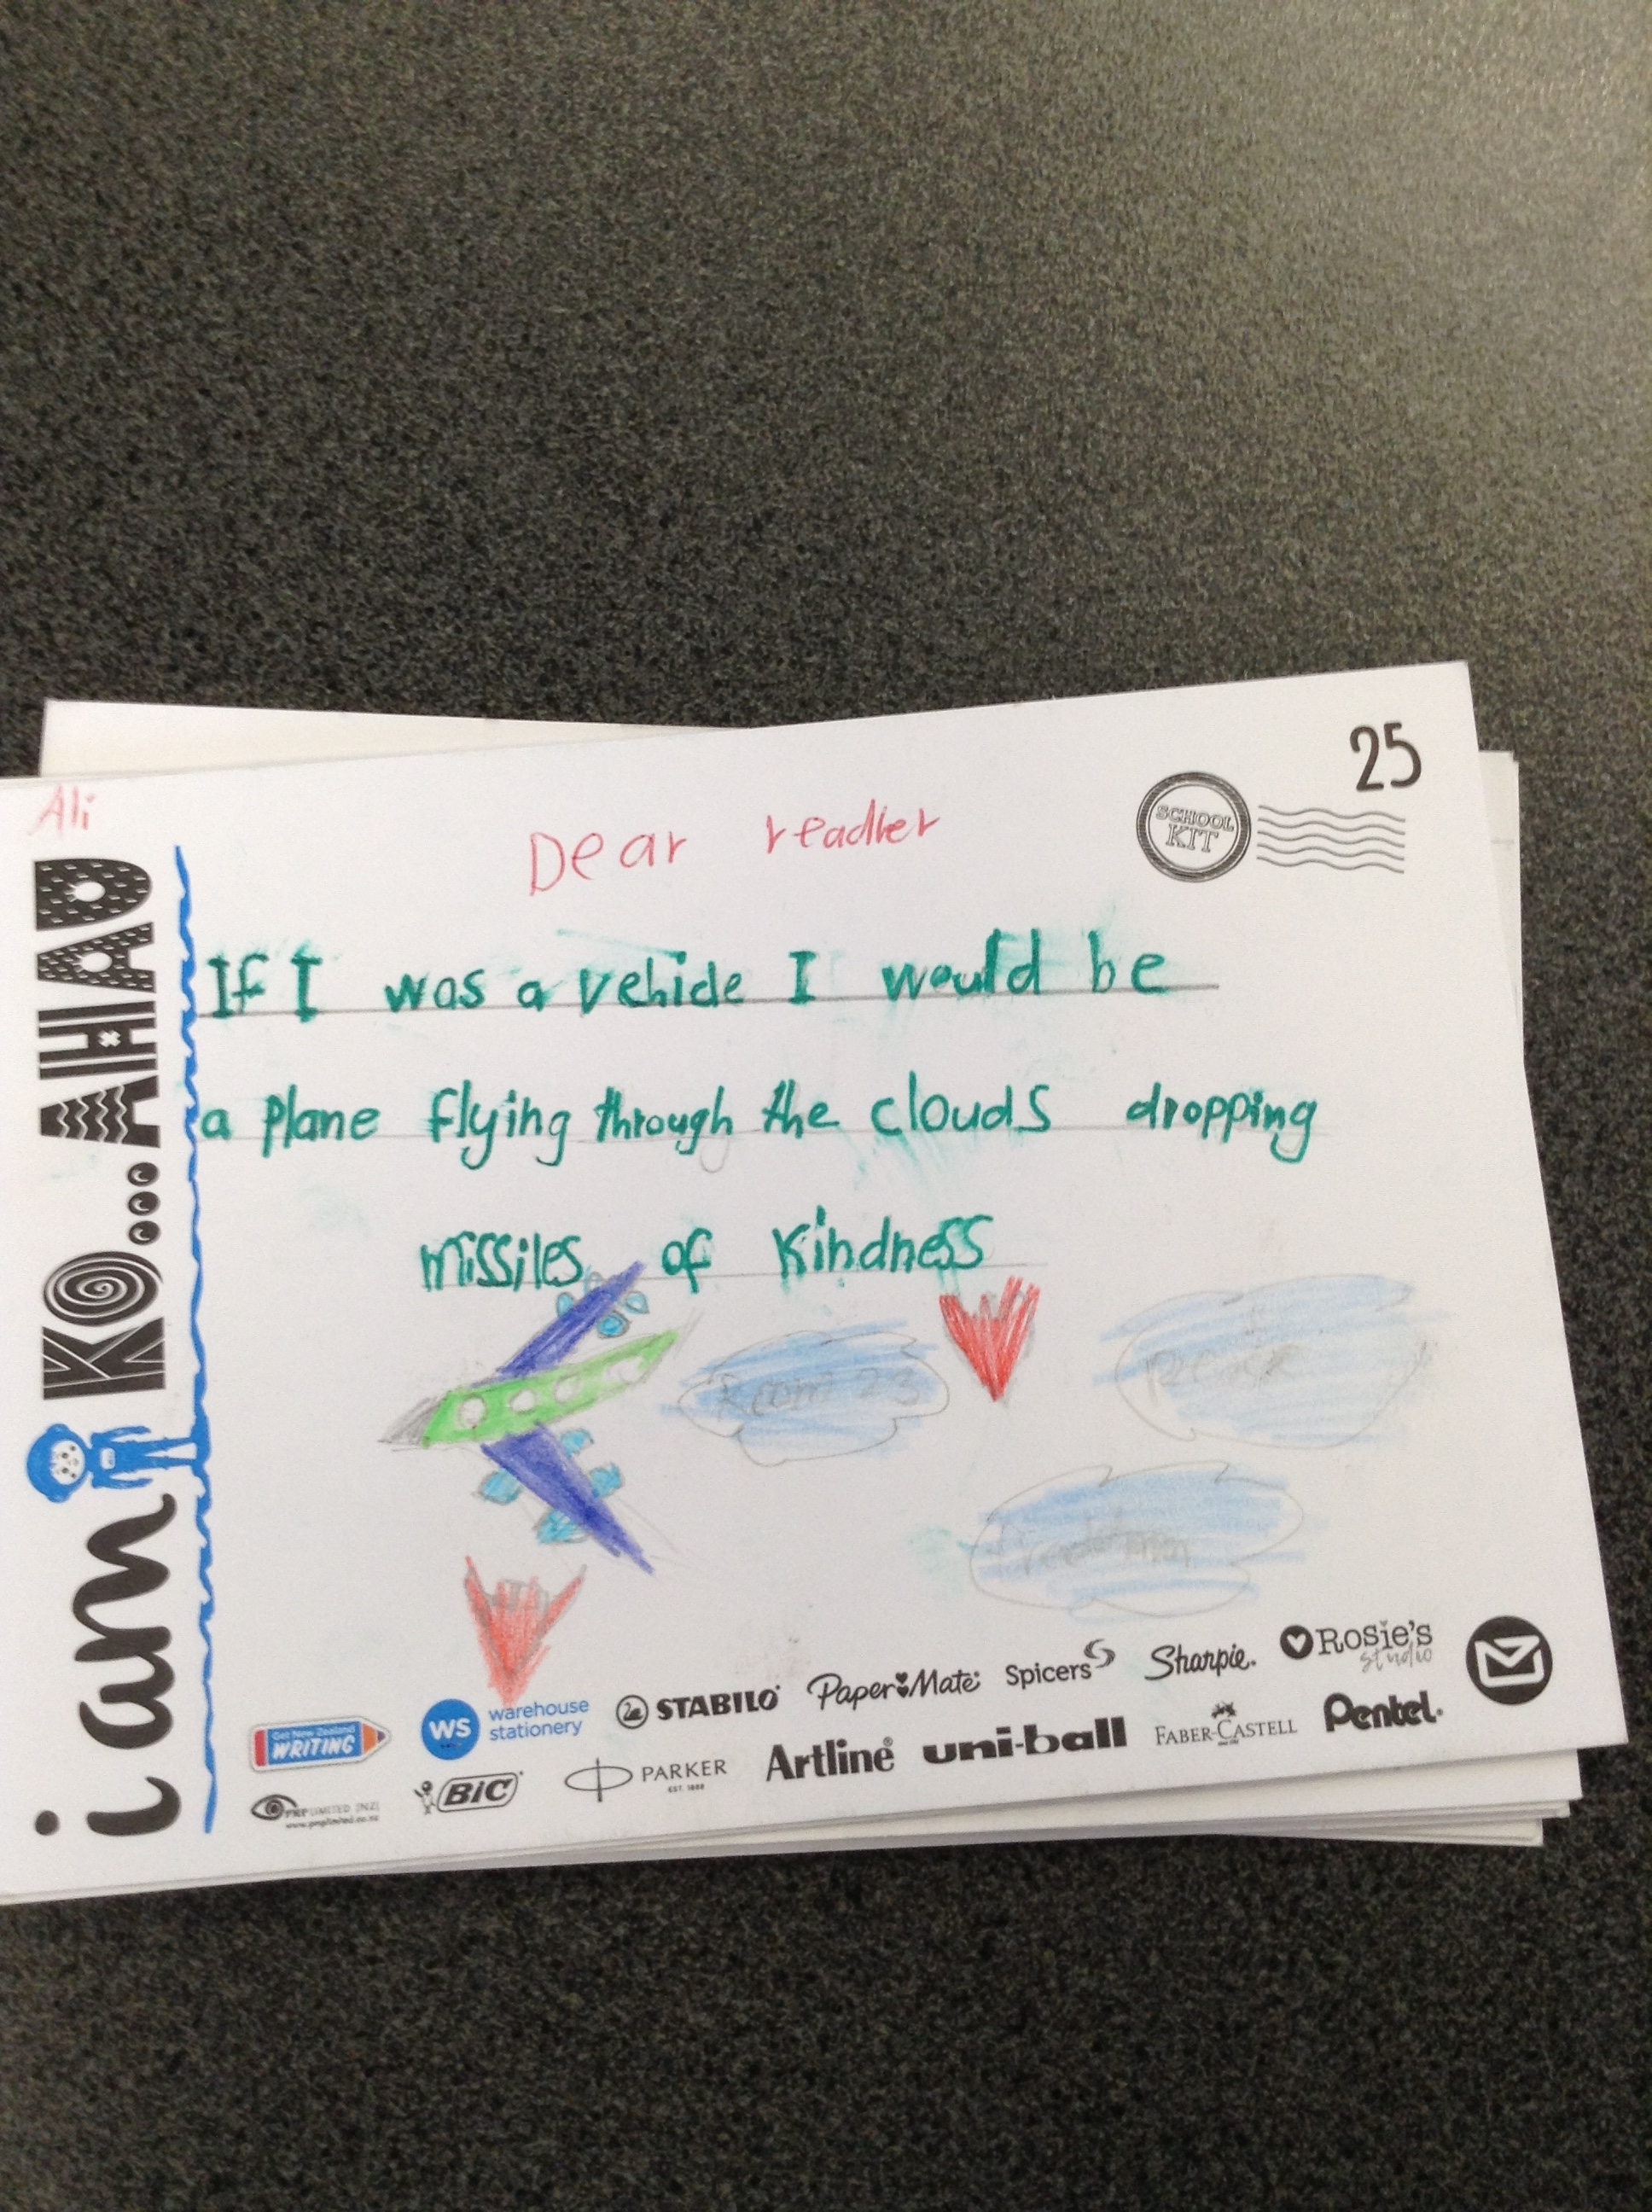 25
SCHOOL
KIT
Ali
Dear readher
If I was a vehicle I would be
a plane flying through the clouds dropping
missiles of kindness
Room 23
i am KO...AHAU
Get New Zealand
WRITING
WS warehouse
stationery
STABILO
Paper Mate
Spicers
Sharpie.
Rosie's
studio
BIC
PARKER
EST. 1888
Artline
uni-ball
FABER-CASTELL
Pentel.
LIMITED (NZ)